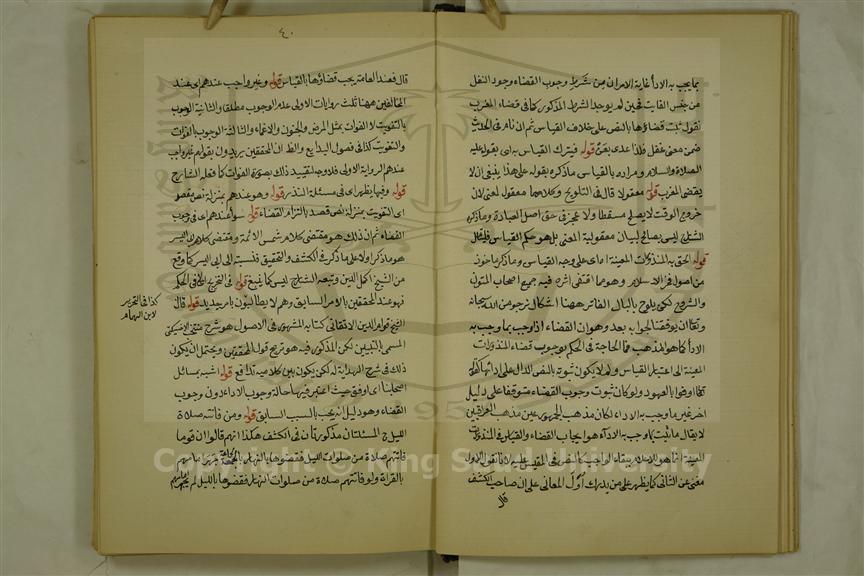 بما يجب به الاداء غاية الامر ان من شرط وجوب القضاء وجود النفل
من جنس الفايت فحين لم يوجد الشرط المذكور كما في قضاء المغرب
نقول ثبت قضاؤها بالنص على خلاف القياس ثم ان نام في الحديث
ضمن معنى غفل فلذا عدى بعن قوله فيترك القياس به اى بقوله عليه
الصلاة والسلام ومراد بالقياس ماذكره بقوله على هذا ينبغى ان لا
يقضى المغرب قوله معقولا قال في التلويح وكلاهما معقول لمعنى لان
خروج الوقت لا يصلح مسقطا ولا عجز في حق اصل العبادة وماذكره
الشارح ليس بصالح لبيان معقولية المعنى بل هو حكم القياس فليتأمل
قوله الحق به المنذورات المعينة اى على وجه القياس وماذكره ماخوذ
من اصول فخر الاسلام وهو ما اقتفى اثره فيه جميع اصحاب المتون
والشروح لكن يلوح بالبال الفاتر ههنا اشكال نرجو من الله سبحانه
وتعالى ان يوفقنا لجوابه بعد وهو ان القضاء اذا وجب بما وجب به
الاداء كما هو المذهب فما الحاجة في الحكم بوجوب قضاء المنذورات
المعينة الى اعتبار القياس ولم لا يكون ثبوته بالنص الدال على ادائها كقوله
تعالى اوفوا بالعهود ولو كان ثبوت وجوب القضاء متوقفا على دليل
اخر غير ما وجب به الاداء لكان مذهب الجمهور عين مذهب العراقيين
لا يقال ما ثبت بما وجب به الاداء هو ايجاب القضاء والقياس في المنذورات
المعينة انما هو لاعلام بقاء الواجب كما لانا نقول الاول
معنى عن الثانى كما يظهر على من يدرك اول المعانى على ان صاحب الكشف
قال
٤٠
قال فعند العامة يجب قضاؤها بالقياس قوله وغير واجب عندهم اى عند
المخالفين ههنا ثلث روايات الاولى عدم الوجوب مطلقا والثانية الوجوب
بالتفويت لا الفوات بمثل المرض والجنون والاغماء والثالثة الوجوب بالفوات
والتفويت كذا في فصول البدايع والظ ان المحققين يريدون بقولهم غير واجب
عندهم الرواية الاولى فلا وجه لتقييد ذلك بصورة الفوات كما فعله الشارح
قوله وفيها يظهر اى في مسئلة النذر قوله وهو عندهم بمنزلة نص مقصود
اى التفويت بمنزلة نص قصد بالتزام القضاء قوله سواء عندهم اى في وجوب
القضاء ثم ان ذلك هو مقتضى كلام شمس الائمة ومقتضى كلام ابى اليسر
هو ماذكر اولا على ماذكر في الكشف والتحقيق فنسبته الى ابى اليسر كما وقع
من الشيخ اكمل الدين وتبعه الشارح ليس كما ينبغى قوله في التخريج لا في الحكم
فهو عند المحققين بالامر السابق وهم لا يطالبون بامر جديد قوله قال
الشيخ قوام الدين الاتقانى كتابه المشهور في الاصول هو شرح منتخب الاخسيكتى
المسمى بالتبيين لكن المذكور فيه هو ترجيح قول المحققين ويحتمل ان يكون
ذلك في شرح الهداية له لكن يكون بين كلاميه تدافع قوله اشبه بمسائل
اصحابنا اى اوفق حيث اعتبر فيها حالة وجوب الاداء دون وجوب
القضاء وهو دليل انه يجب بالسبب السابق قوله ومن فاتته صلاة
الليل ح المسئلتان مذكورتان في الكشف هكذا انهم قالوا ان قوما
فاتتهم صلاة من صلوات الليل فقضوها بالنهار بالجماعة جهر امامهم
بالقراءة ولو فاتتهم صلاة من صلوات النهار فقضوها بالليل لم يجهر امامهم
كذا فى التحرير
لابن الهمام
Copyright © King Saud University
1957